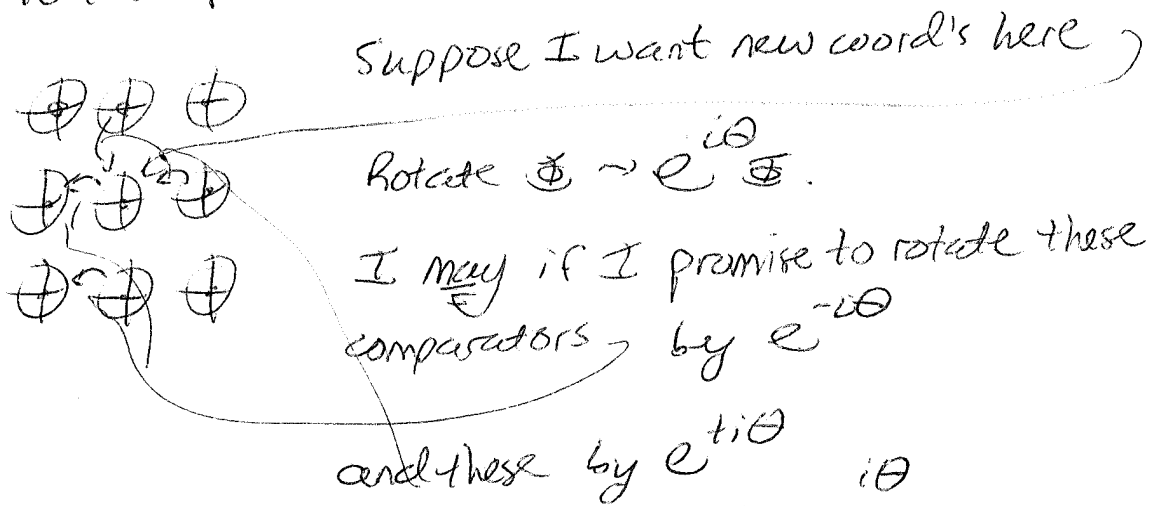 Suppose I want new coord's here
Rotate Φ ~ e^{iθ} Φ.
I may if I promise to rotate these
comparators by e^{-iθ}
and these by e^{+iθ} iθ